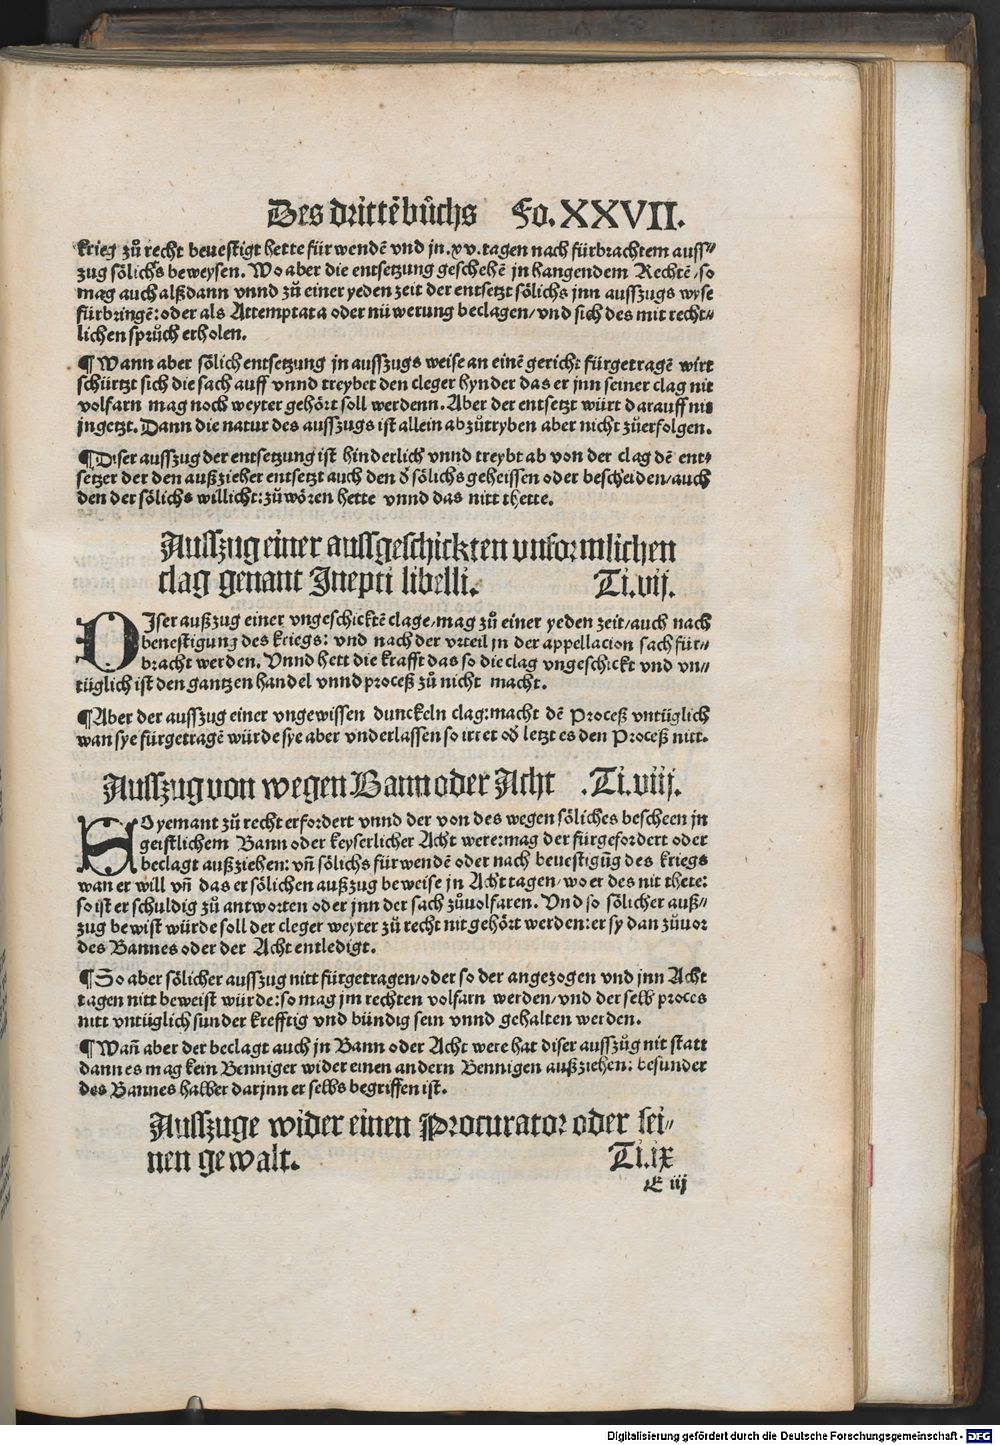 Des drittẽ bůchs Fo. XXVII.
krieg zů recht beuestigt hette für wendẽ vnd jn .xv. tagen nach fürbrachtem auss⸗
zug sölichs beweysen. Wo aber die entsetzung geschehẽ jn hangendem Rechtẽ / so
mag auch alßdann vnnd zů einer yeden zeit der entsetzt sölichs jnn ausszugs wyse
fürbringẽ: oder als Attemptata oder nüwerung beclagen / vnd sich des mit recht⸗
lichen sprůch erholen.
¶ Wann aber sölich entsetzung jn ausszugs weise an einẽ gericht fürgetragẽ wirt
schürtzt sich die sach auff vnnd treybet den cleger hynder das er jnn seiner clag nit
volfarn mag noch weyter gehört soll werdenn. Aber der entsetzt würt darauff nit
jngetzt. Dann die natur des ausszugs ist allein abzůtryben aber nicht zůerfolgen.
¶ Diser ausszug der entsetzung ist hinderlich vnnd treybt ab von der clag dẽ ent⸗
setzer der den außzieher entsetzt auch den d̕ sölichs geheissen oder bescheiden / auch
den der sölichs willicht: zů wören hette vnnd das nitt thette.
Ausszug einer aussgeschickten unformlichen
clag genant Inepti libelli. Ti. vij.
DIser außzug einer vngeschicktẽ clage / mag zů einer yeden zeit / auch nach
beuestigung des kriegs: vnd nach der vrteil jn der appellacion sach für⸗
bracht werden. Vnnd hett die krafft das so die clag vngeschickt vnd vn⸗
tüglich ist den gantzen handel vnnd proceß zů nicht macht.
¶ Aber der ausszug einer vngewissen dunckeln clag: macht dẽ Proceß vntüglich
wan sye fürgetragẽ würde sye aber vnderlassen so irret od̕ letzt es den Proceß nitt.
Ausszug von wegen Bann oder Acht . Ti. viij.
SO yemant zů recht erfordert vnnd der von des wegen söliches bescheen jn
geistlichem Bann oder keyserlicher Acht were: mag der fürgefordert oder
beclagt außziehen: vñ sölichs fürwendẽ oder nach beuestigũg des kriegs
wan er will vñ das er sölichen außzug beweise jn Acht tagen / wo er des nit thete:
so ist er schuldig zů antworten oder jnn der sach zůuolfaren. Vnd so sölicher auß⸗
zug bewist würde soll der cleger weyter zů recht nit gehört werden: er sy dan zůuor
des Bannes oder der Acht entledigt.
¶ So aber sölicher ausszug nitt fürgetragen / oder so der angezogen vnd jnn Acht
tagen nitt beweist würde: so mag jm rechten volfarn werden / vnd der selb proces
nitt vntüglich sunder krefftig vnd bündig sein vnnd gehalten werden.
¶ Wañ aber der beclagt auch jn Bann oder Acht were hat diser ausszüg nit statt
dann es mag kein Benniger wider einen andern Bennigen außziehen: besunder
des Bannes halber darjnn er selbs begriffen ist.
Ausszuge wider einen Procurator oder sei⸗
nen gewalt. Ti. ix
E iij
Digitalisierung gefördert durch die Deutsche Forschungsgemeinschaft - DFG